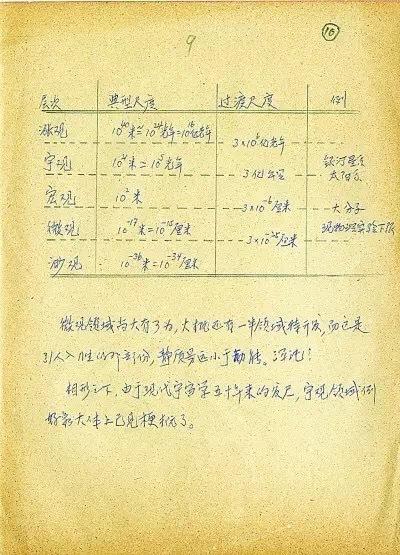 16
9
层次 典型尺度 过渡尺度 例
胀观 10⁴⁰米≅10²⁴光年=10¹⁶亿光年
3×10⁶亿光年
宇观 10²¹米=10⁵光年 银河星系
3亿公里 太阳系
宏观 10²米
3×10⁻⁶厘米 大分子
微观 10⁻¹⁷米=10⁻¹⁵厘米 现物理实验下限
3×10⁻²⁵厘米
渺观 10⁻³⁶米=10⁻³⁴厘米
微观领域尚大有可为,大概还有一半领域待开发,而这是
引人入胜的部份,静质量远小于动能。
相形之下,由于现代宇宙学五十年来的发展,宇观领域倒
好象大体上已见梗概了。